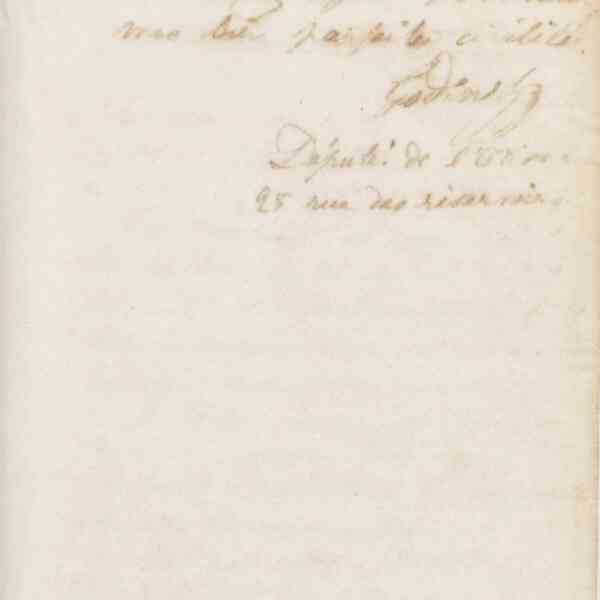 mes bien parfaite civilité.
Godin
Député de l'Aisne
28 rue des réservoirs